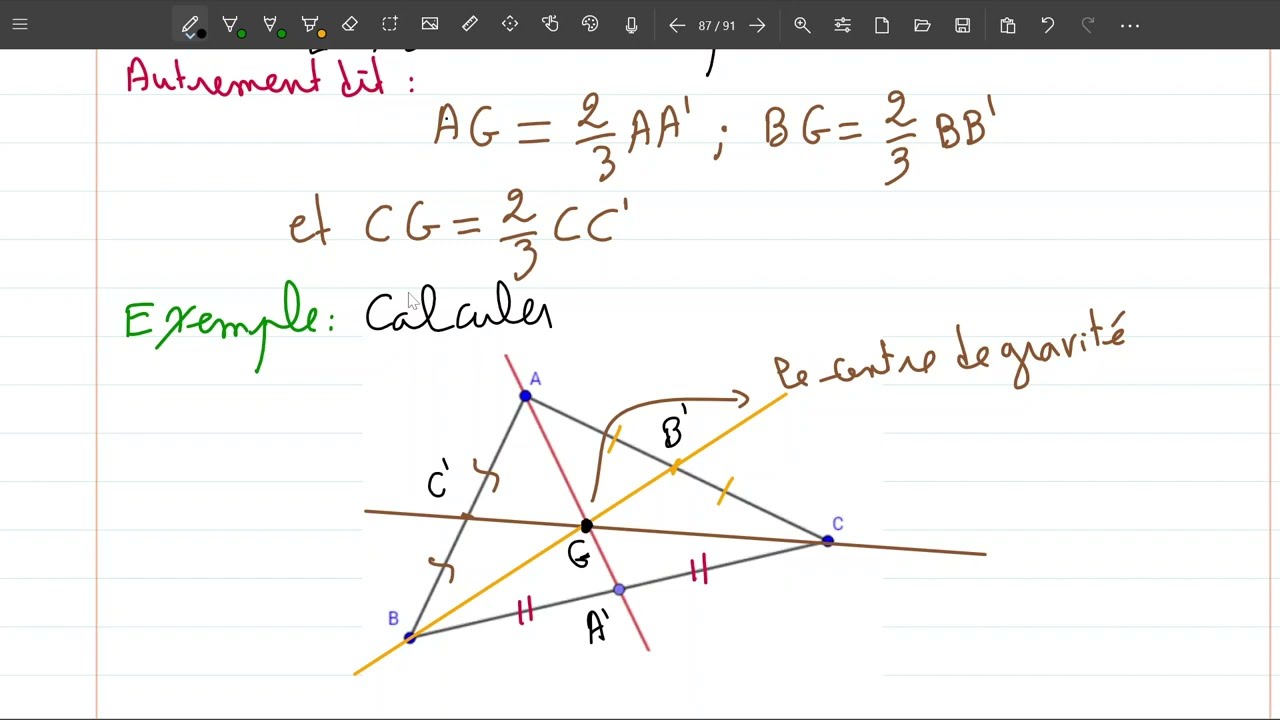 87 / 91
Autrement dit :
AG = 2/3 AA' ; BG = 2/3 BB'
et CG = 2/3 CC'
Exemple: Calculer
le centre de gravité
A
B'
C'
C
G
B
A'